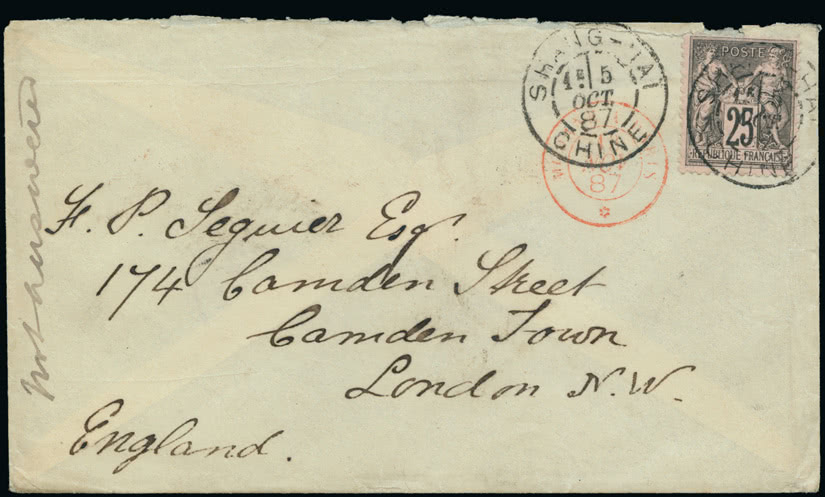 SHANG-HAI
1E 5
OCT.
87
CHINE
POSTE
25
REPUBLIQUE FRANÇAISE
SHANG-HAI
CHINE
87
F. P. Seguier Esqr.
174 Camden Street
Camden Town
London N.W.
England.
not answered